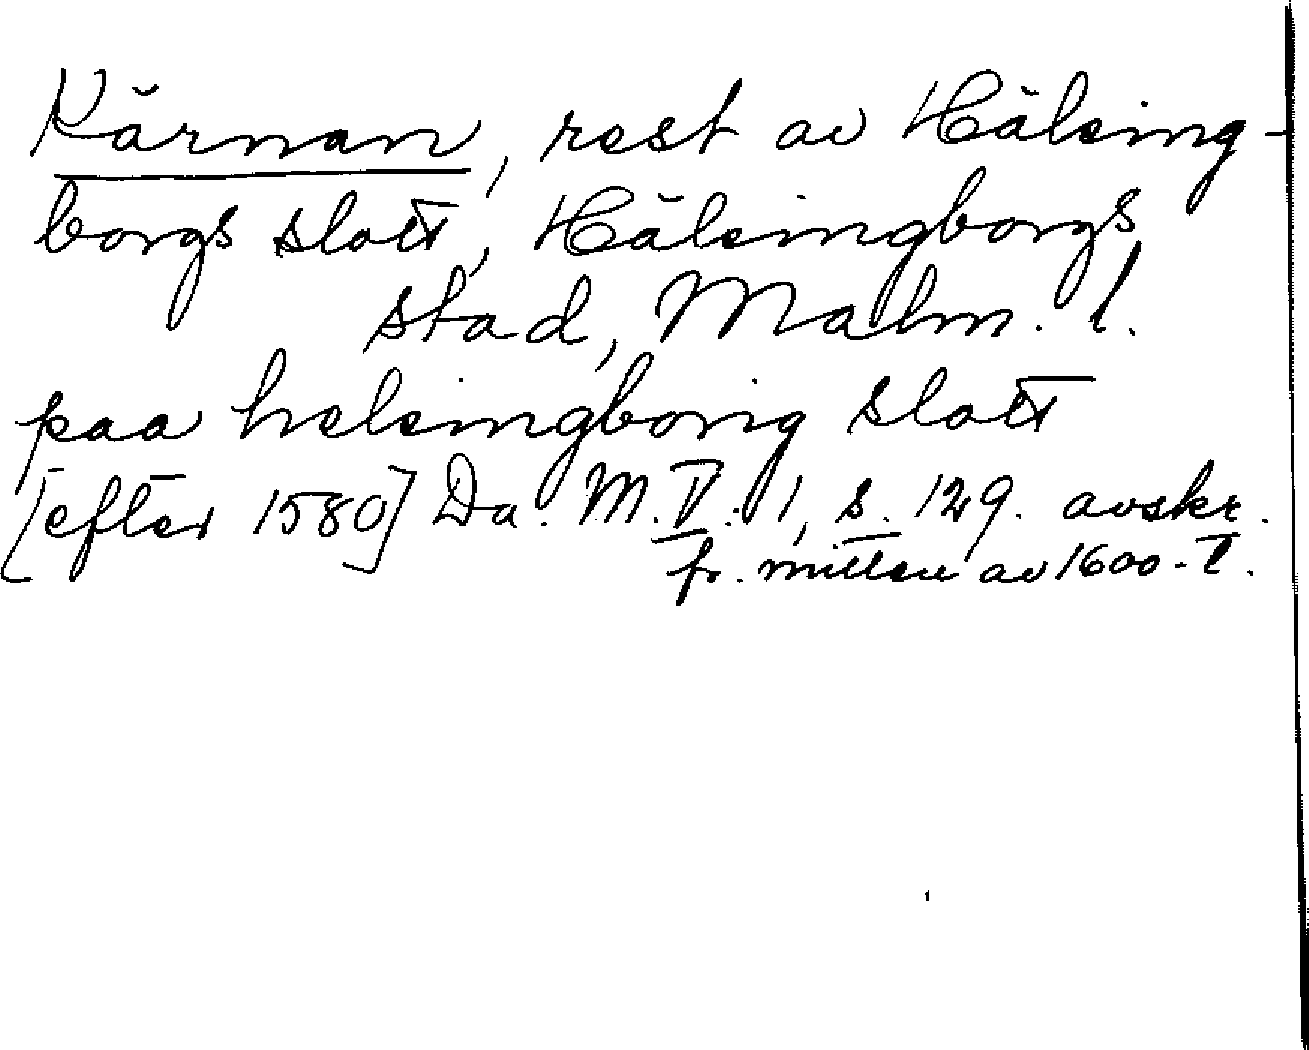 Kärnan, rest av Hälsing-
borgs slott, Hälsingborgs
stad, Malm. l.
paa helsingborig slott
[efter 1580] Da. M. V: 1, s. 129. avskr.
fr. mitten av 1600-t.